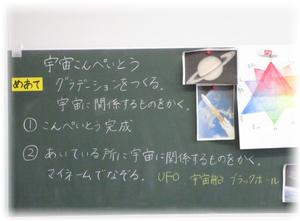 宇宙こんぺいとう
めあて グラデーションをつくる。
宇宙に関係するものをかく。
① こんぺいとう完成
② あいている所に宇宙に関係するものをかく。
マイネームでなぞる。 UFO 宇宙船 ブラックホール